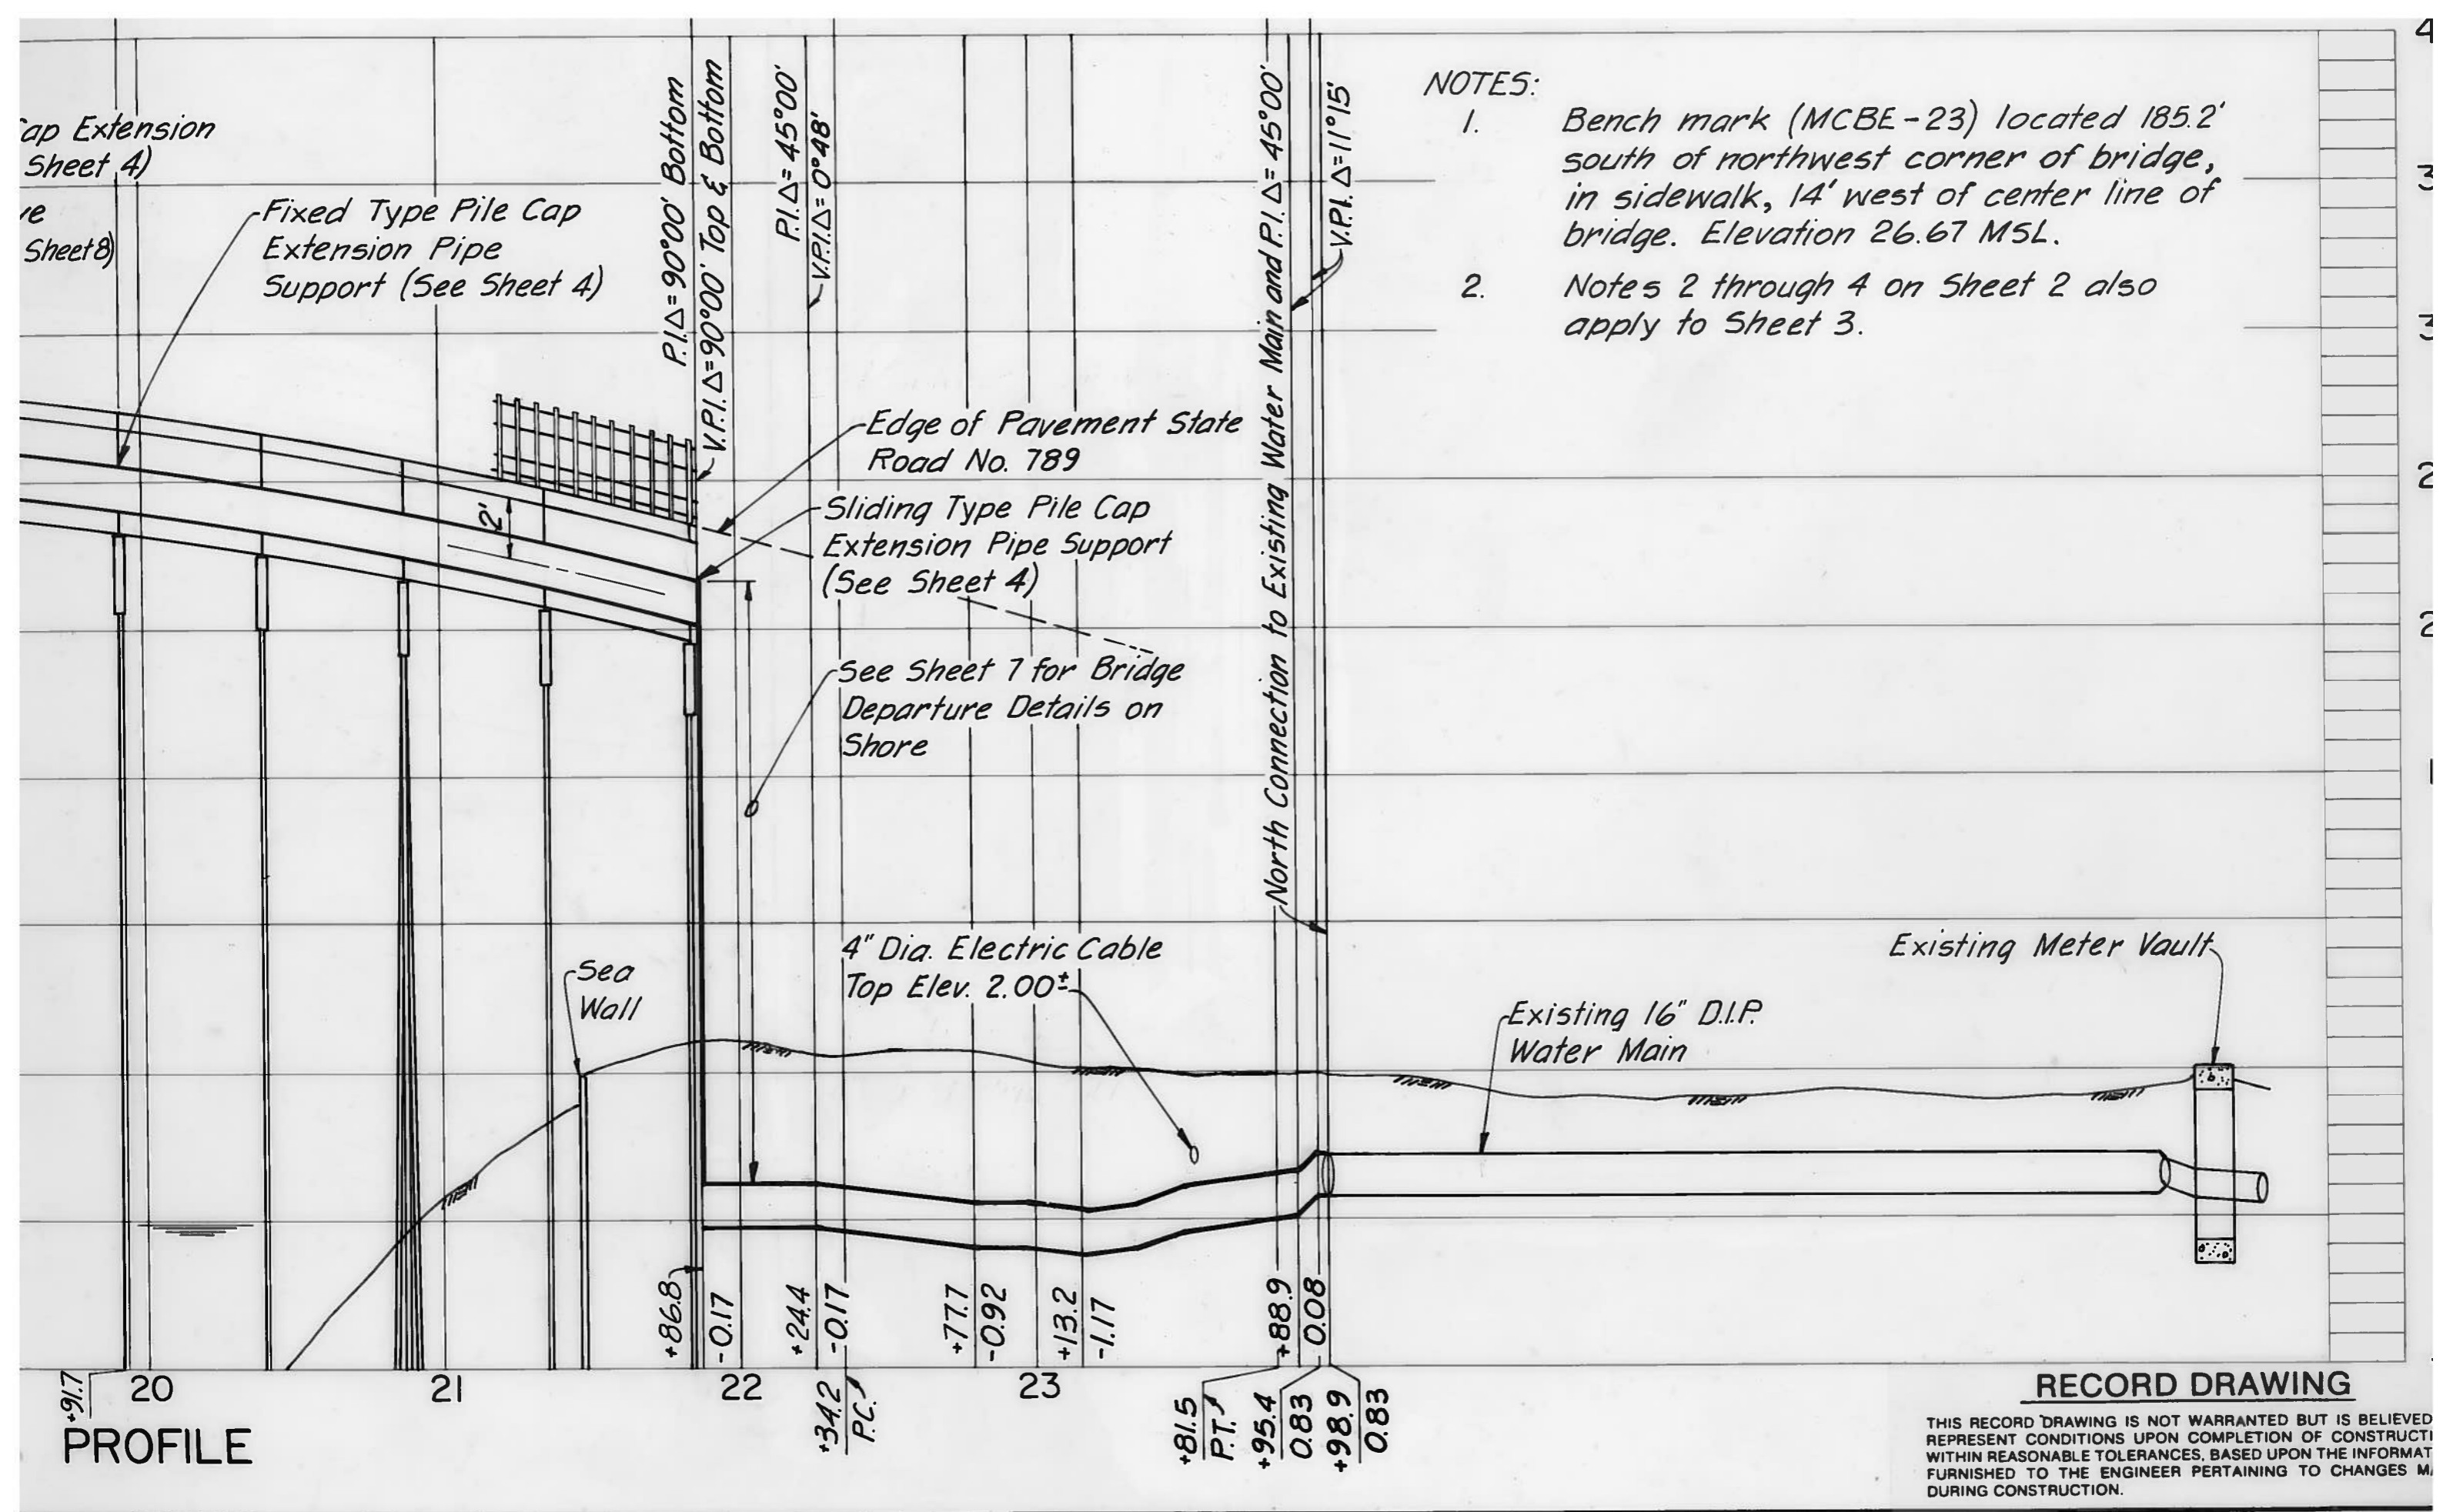 ap Extension
Sheet 4)
Sheet 8)
Fixed Type Pile Cap
Extension Pipe
Support (See Sheet 4)
P.I.Δ=90°00' Bottom
V.P.I.Δ=90°00' Top & Bottom
P.I.Δ=45°00'
V.P.I.Δ=0°48'
North Connection to Existing Water Main and P.I.Δ=45°00'
V.P.I.Δ=11°15'
NOTES:
1. Bench mark (MCBE-23) located 185.2'
south of northwest corner of bridge,
in sidewalk, 14' west of center line of
bridge. Elevation 26.67 MSL.
2. Notes 2 through 4 on Sheet 2 also
apply to Sheet 3.
2'
Edge of Pavement State
Road No. 789
Sliding Type Pile Cap
Extension Pipe Support
(See Sheet 4)
See Sheet 7 for Bridge
Departure Details on
Shore
Sea
Wall
4" Dia. Electric Cable
Top Elev. 2.00±
Existing 16" D.I.P.
Water Main
Existing Meter Vault
+86.8
-0.17
+24.4
-0.17
+77.7
-0.92
+13.2
-1.17
+88.9
0.08
+91.7
20
21
22
23
+34.2
P.C.
+81.5
P.T.
+95.4
0.83
+98.9
0.83
PROFILE
RECORD DRAWING
THIS RECORD DRAWING IS NOT WARRANTED BUT IS BELIEVED
REPRESENT CONDITIONS UPON COMPLETION OF CONSTRUCTI
WITHIN REASONABLE TOLERANCES, BASED UPON THE INFORMAT
FURNISHED TO THE ENGINEER PERTAINING TO CHANGES M
DURING CONSTRUCTION.